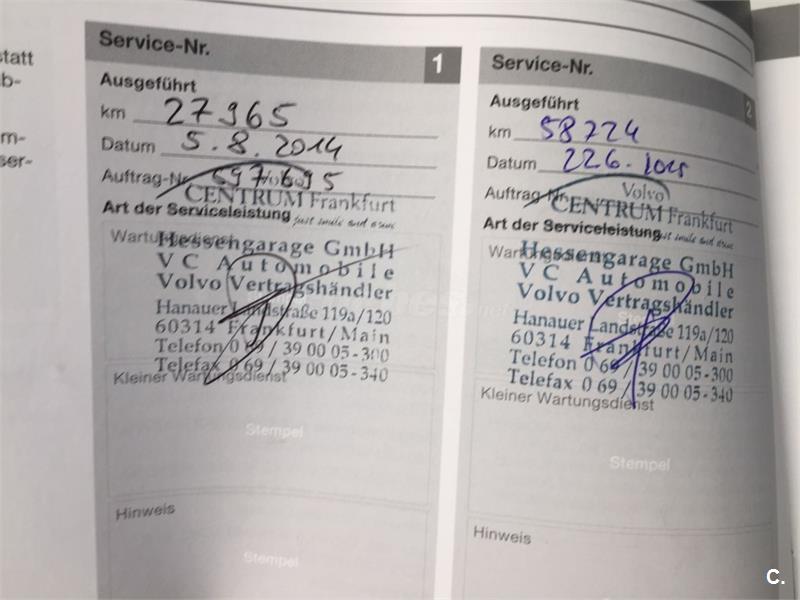 statt
b-
m-
ser-
Service-Nr. 1
Ausgeführt
km 27965
Datum 5.8.2014
Auftrag-Nr. 597695
Volvo
CENTRUM Frankfurt
just smile and drive
Art der Serviceleistung
Wartungsdienst
Hessengarage GmbH
VC Automobile
Volvo Vertragshändler
Hanauer Landstraße 119a/120
60314 Frankfurt/Main
Telefon 0 69 / 39 00 05-300
Telefax 0 69 / 39 00 05-340
Kleiner Wartungsdienst
Stempel
Hinweis
Stempel
Service-Nr. 2
Ausgeführt
km 58724
Datum 226.2015
Auftrag-Nr.
Volvo
CENTRUM Frankfurt
just smile and drive
Art der Serviceleistung
Wartungsdienst
Hessengarage GmbH
VC Automobile
Volvo Vertragshändler
Hanauer Landstraße 119a/120
60314 Frankfurt/Main
Telefon 0 69 / 39 00 05-300
Telefax 0 69 / 39 00 05-340
Kleiner Wartungsdienst
Stempel
Hinweis
C.